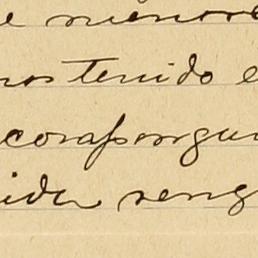 e menore
nos tenido e
corasongui
ida reng